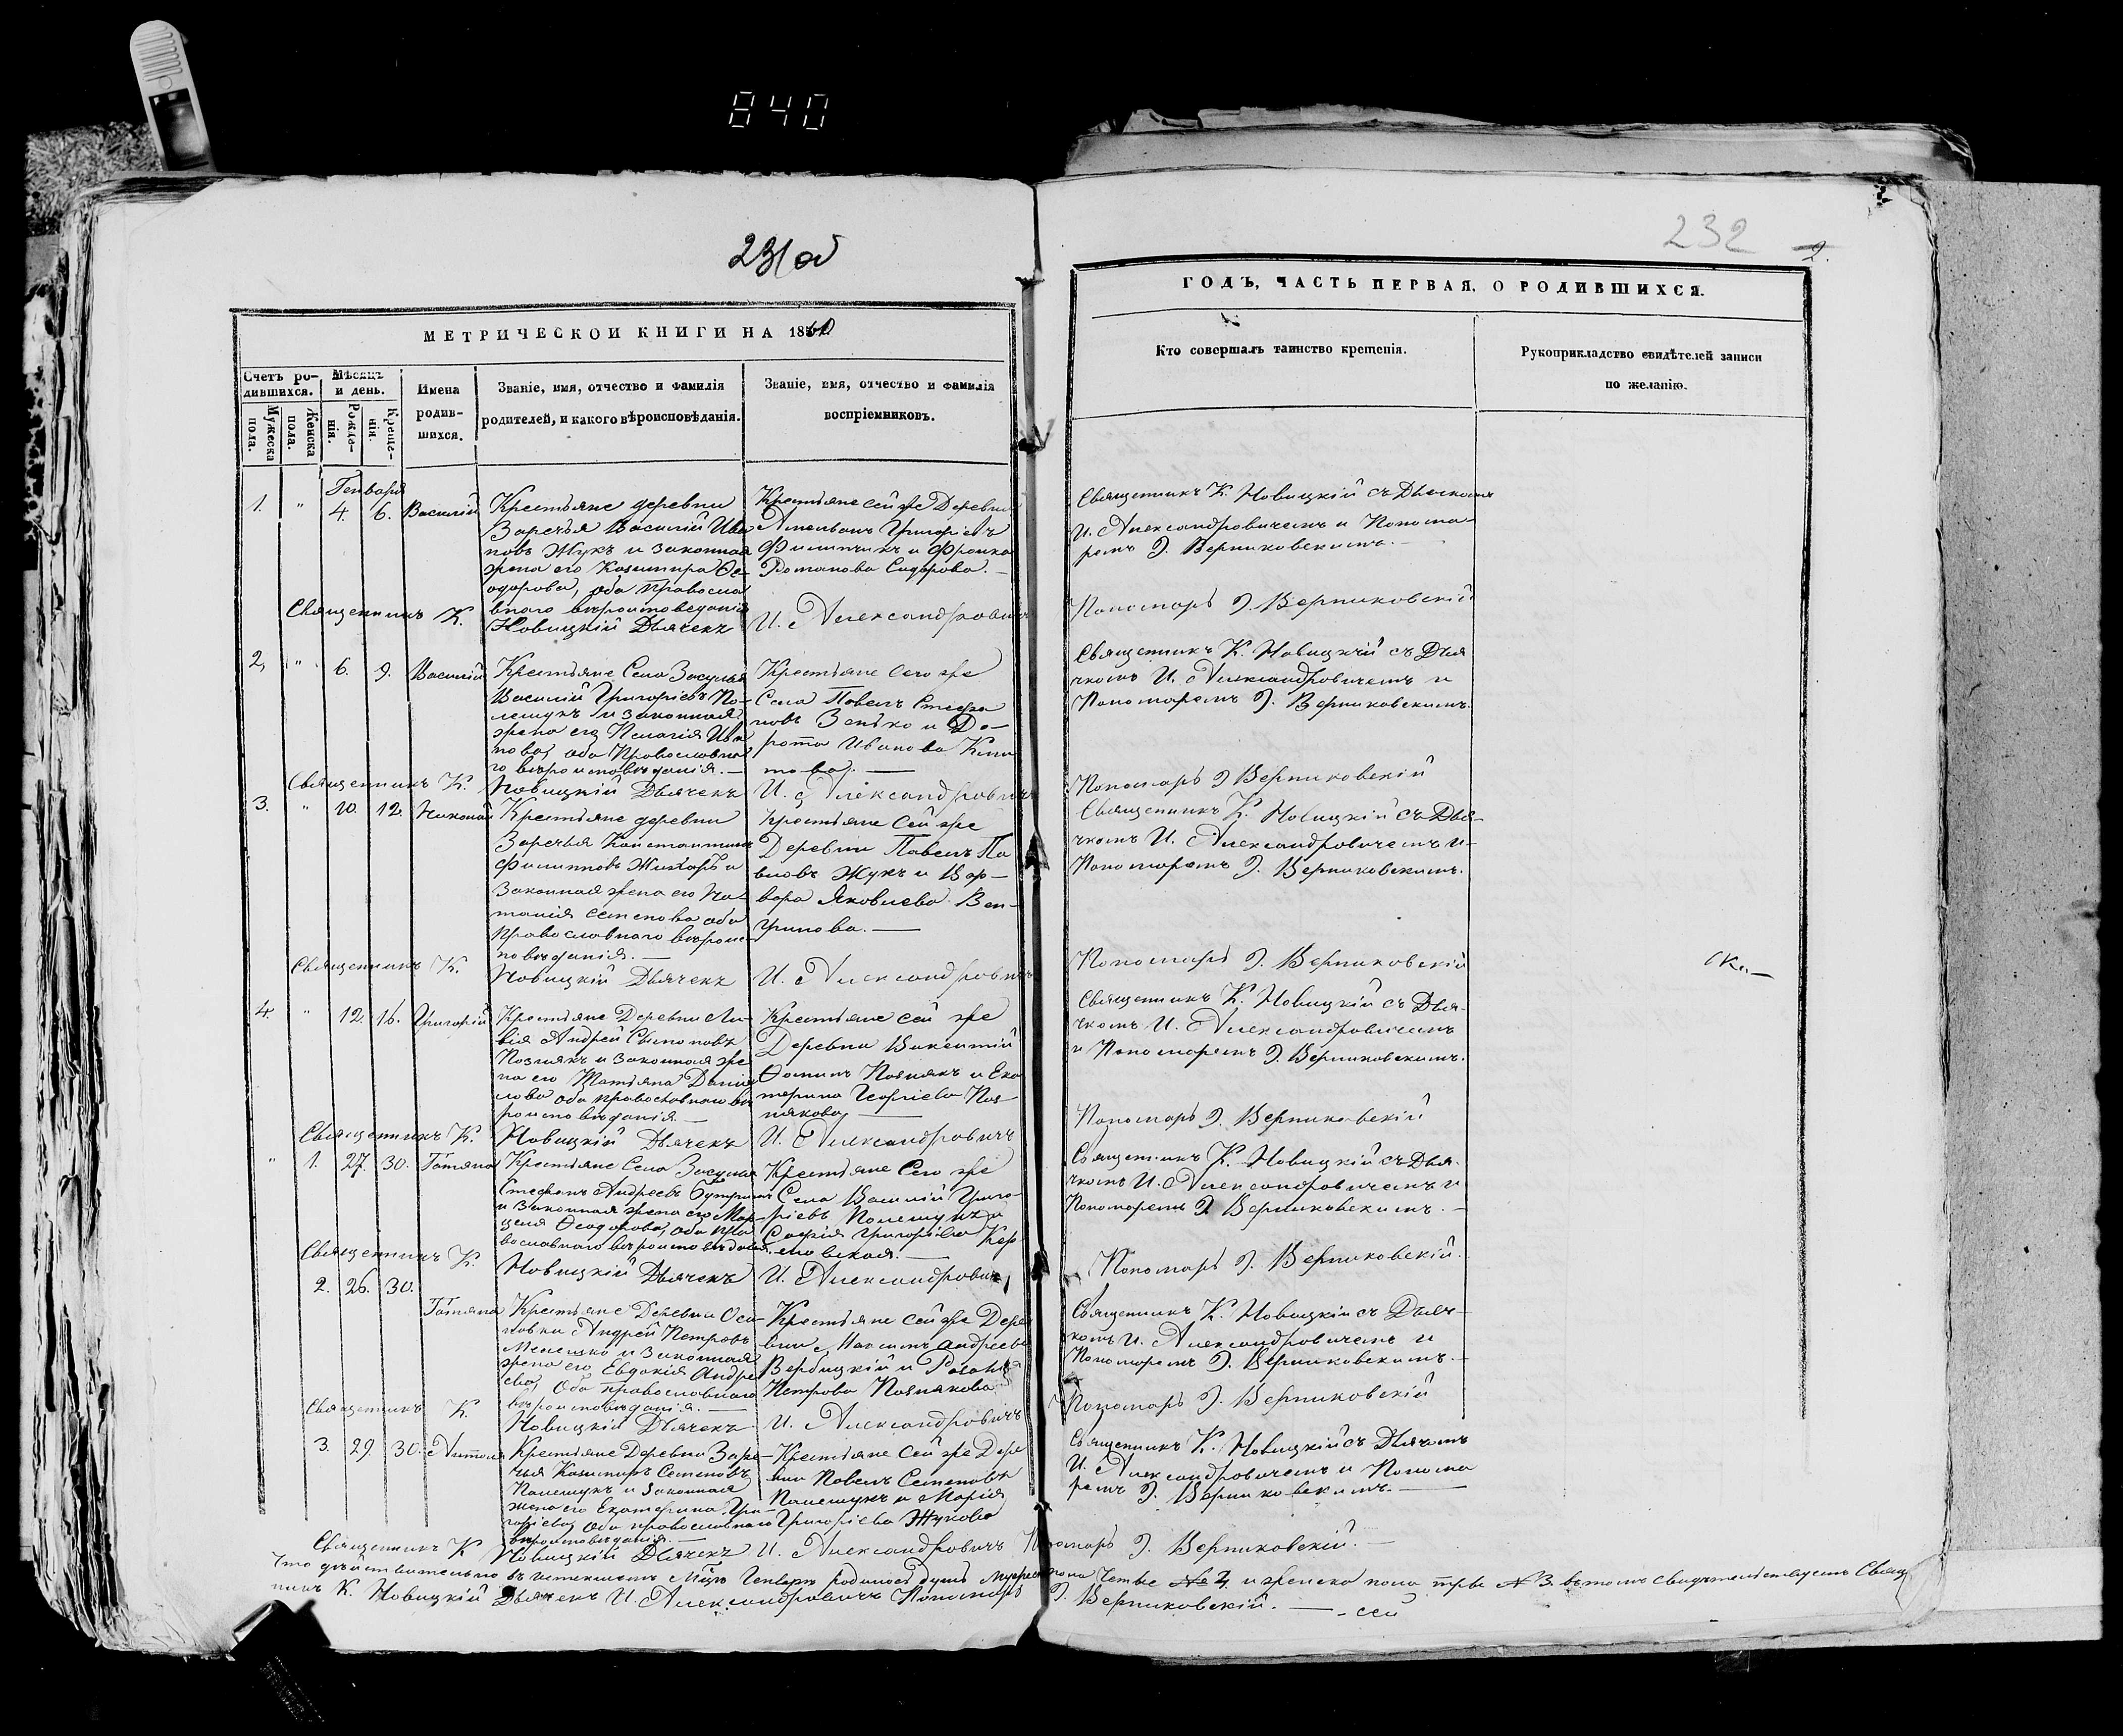 840
231 об
232
2.
МЕТРИЧЕСКОЙ КНИГИ НА 1860
ГОДЪ, ЧАСТЬ ПЕРВАЯ, О РОДИВШИХСЯ.
Счетъ ро-
дившихся.
Мужеска
пола.
Женска
пола.
Мѣсяцъ
и день.
Рожде-
нія.
Креще-
нія.
Имена
родив-
шихся.
Званіе, имя, отчество и фамилія
родителей, и какого вѣроисповѣданія.
Званіе, имя, отчество и фамилія
воспріемниковъ.
Кто совершалъ таинство крещенія.
Рукоприкладство свидѣтелей записи
по желанію.
Генваря
1. " 4. 6. Василій
Крестьяне деревни
Заречья Василій Ива
новъ Жукъ и законная
жена его Казимира Ѳе-
одорова, оба православ
вного вѣроисповеданія
Крестьяне сей же Деревни
Григоріевъ
Филипчикъ и Франка
Романова Сидорова.
Священникъ К. Новицкій съ Дьячкомъ
И. Александровичемъ и Понома-
ремъ Э. Верниковскимъ.
Священникъ К. Новицкій Дьячекъ И. Александровичъ Пономарь Э. Верниковскій
2. " 6. 9. Василій
Крестьяне Села Засулья
Василій Григоріевъ По-
лешукъ и законная
жена его Пелагія Ива
нова, оба Православна
го вѣроисповѣданія.
Крестьяне сего же
Села Павелъ Стефа
новъ Зенько и До-
рота Иванова
Священникъ К. Новицкій съ Дья
чкомъ И. Александровичемъ и
Пономаремъ Э. Верниковскимъ.
Священникъ К. Новицкій Дьячекъ И. Александровичъ Пономарь Э Верниковскій
3. " 10. 12. Николай
Крестьяне деревни
Заречья Константинъ
Филипповъ Жихарь и
Законная жена его На-
талія Семенова оба
православнаго вѣроис
повѣданія.
Крестьяне сей же
Деревни Павелъ Па
вловъ Жукъ и Вар-
вара Яковлева
Священникъ К. Новицкій съ Дья-
чкомъ И. Александровичемъ и
Пономаремъ Э. Верниковскимъ.
Священникъ К. Новицкій Дьячекъ И. Александровичъ Пономарь Э. Верниковскій
4. " 12. 16. Григорій
Крестьяне Деревни
Андрей
Познякъ и законная же
на его Татьяна Дани
лова оба православнаго вѣ
роисповѣданія.
Крестьяне сей же
Деревни Викентій
Ѳоминъ Познякъ и Ека
терина Поз-
някова
Священникъ К. Новицкій съ Дья-
чкомъ И. Александровичемъ
и Пономаремъ Э. Верниковскимъ.
Священникъ К. Новицкій Дьячекъ И. Александровичъ Пономарь Э. Верниковскій
" 1. 27. 30. Татяна
Крестьяне Села Засулья
Стефанъ Андреевъ
и Законная жена его Мар-
Ѳеодорова, оба пра
вославнаго вѣроисповѣданія.
Крестьяне Сего же
Села Василій Григо-
ріевъ Полешукъ и
Софія Григоріева
Священникъ К. Новицкій съ Дья-
чкомъ И. Александровичемъ и
Пономаремъ Э. Верниковскимъ.
Священникъ К. Новицкій Дьячекъ И. Александровичъ Пономарь Э. Верниковскій.
2. 26. 30. Татяна
Крестьяне Деревни Оси-
новки Андрей Петровъ
и законная
жена его Евдокія Андре
ева, Оба православнаго
вѣроисповѣданія.
Крестьяне сей же Дере
вни Андреевъ
Вербицкій и
Петрова Познякова
Священникъ К. Новицкій съ Дьяч-
комъ И. Александровичемъ и
Пономаремъ Э. Верниковскимъ.
Священникъ К. Новицкій Дьячекъ И. Александровичъ Пономарь Э. Верниковскій
3. 29. 30.
Крестьяне Деревни Заре-
чья Казимиръ Семеновъ
Полешукъ и Законная
жена его Екатерина Гри-
горіева, Оба православнаго
вѣроисповѣданія.
Крестьяне сей же Дере
вни Павелъ Семеновъ
Полешукъ и Марія
Григоріева Жукова
Священникъ К. Новицкій съ Дьячкомъ
И. Александровичемъ и Понома
ремъ Э. Верниковскимъ.
Священникъ К Новицкій Дьячекъ И. Александровичъ Пономарь Э. Верниковскій.
Что дѣйствительно въ истекшемъ Мцѣ Генварѣ родилось душъ Мужеска пола четыре № 4, и женска пола три № 3. въ томъ свидѣтельствуемъ Священ
никъ К. Новицкій Дьячекъ И. Александровичъ Пономарь Э. Верниковскій.